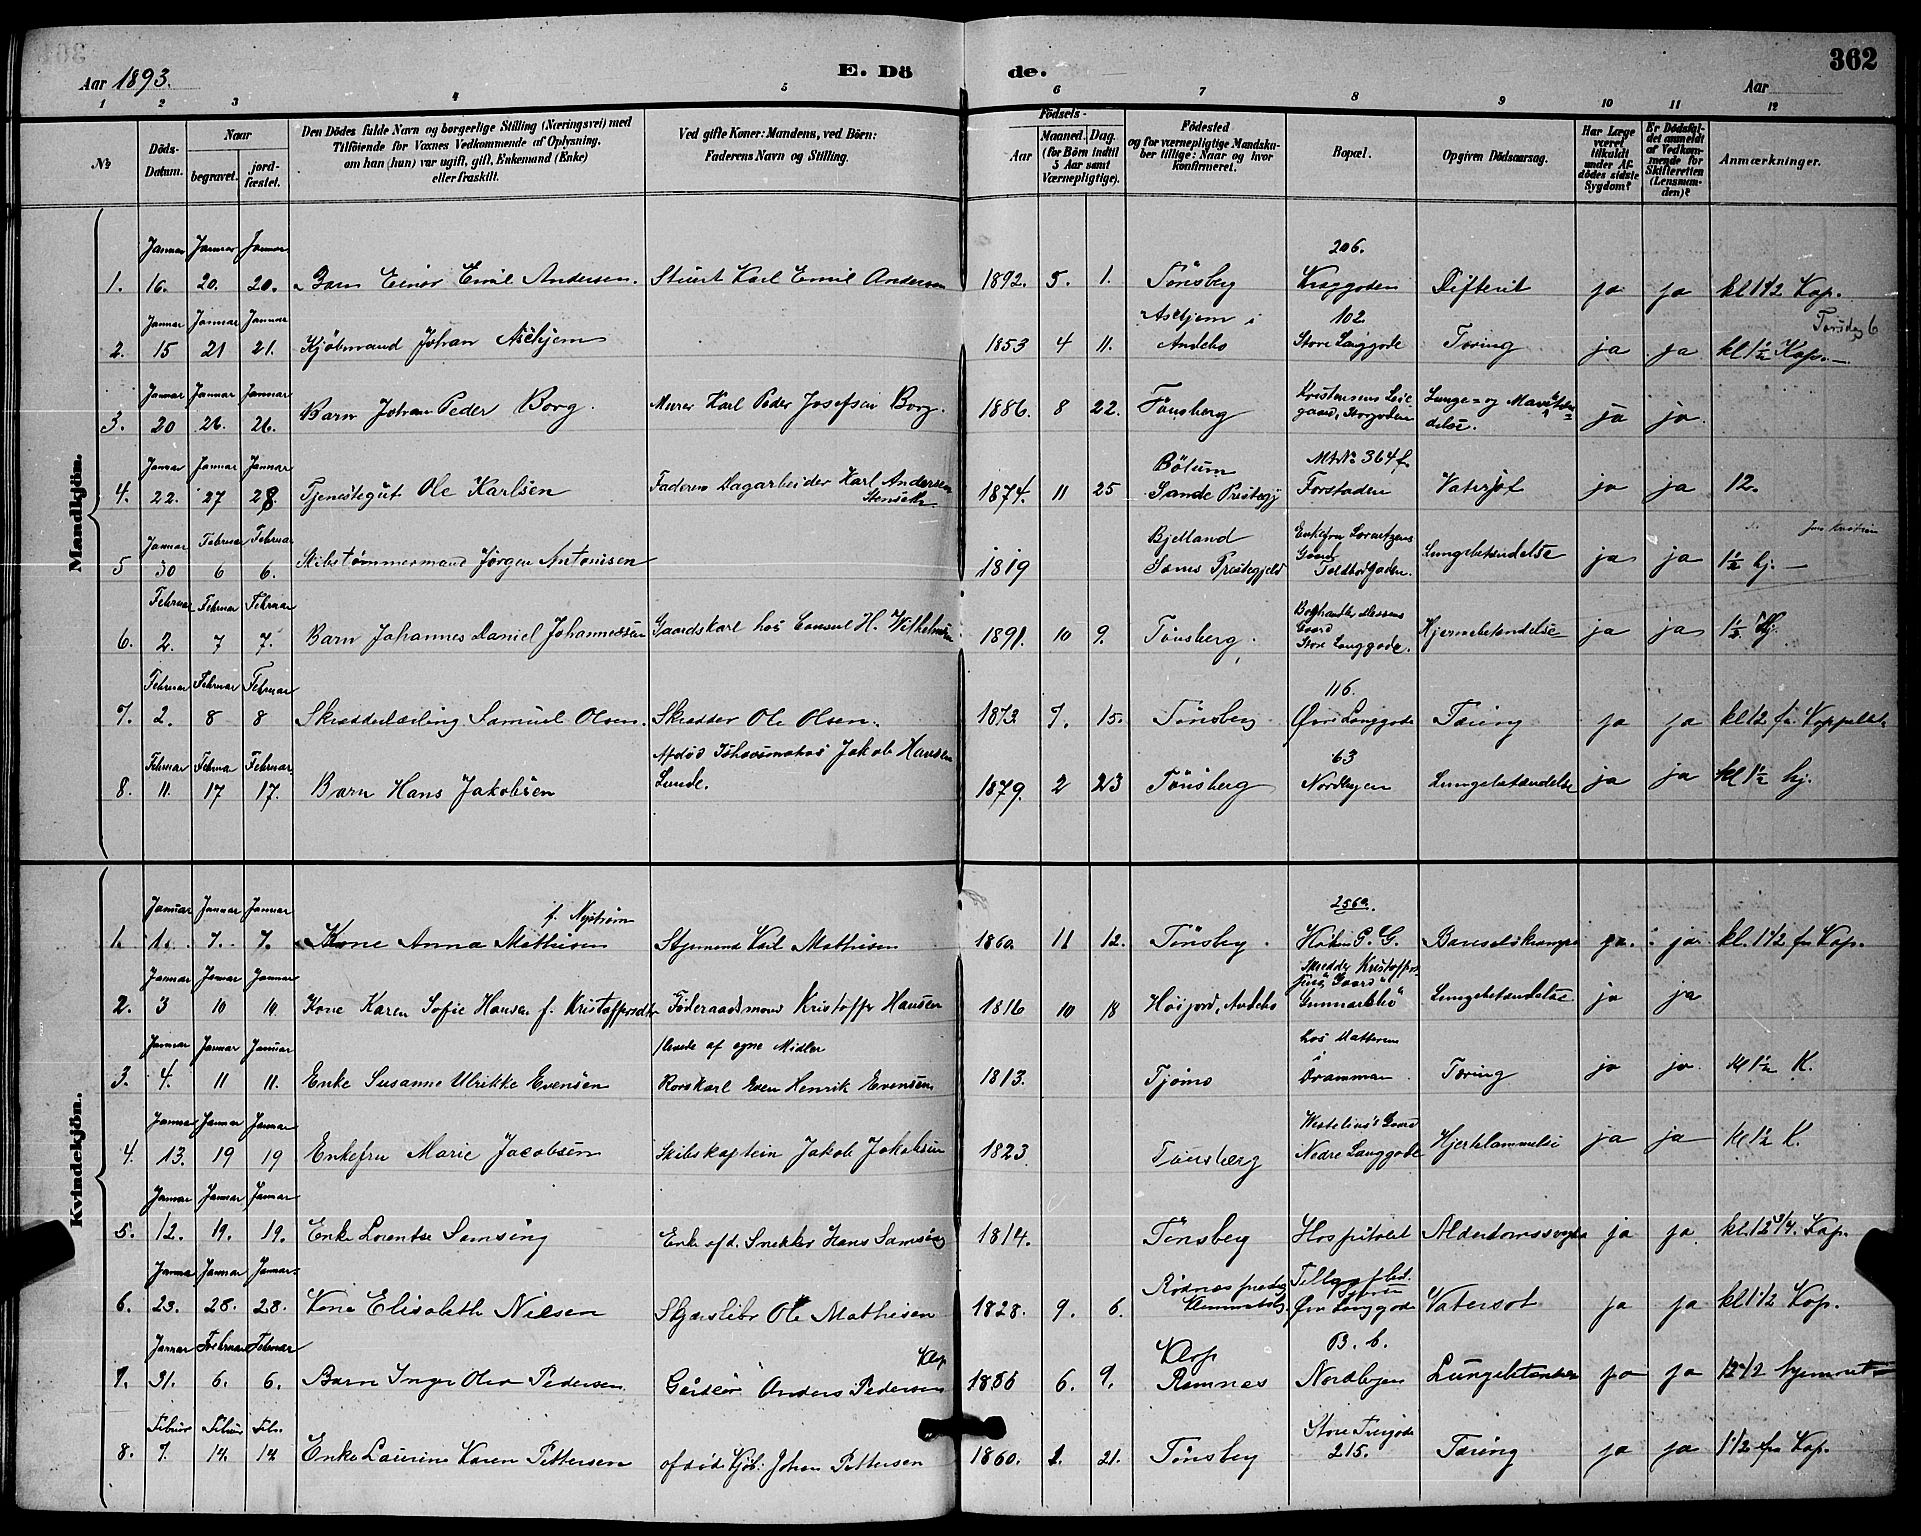 362
Aar 1893.
E. Dö de.
Aar
1 2 3 4 5 6 7 8 9 10 11 12
No
Döds-Datum.
Naar
begravet.
jord-fæstet.
Den Dödes fulde Navn og borgerlige Stilling (Næringsvei) med
Tilföiende for Voxnes Vedkommende af Oplysning,
om han (hun) var ugift, gift, Enkemand (Enke)
eller fraskilt.
Ved gifte Koner: Mandens, ved Börn:
Faderens Navn og Stilling.
Födsels-
Aar
Maaned. Dag.
(for Börn indtil
5 Aar samt
Værnepligtige).
Födested
og for værnepligtige Mandska-
ber tillige: Naar og hvor
konfirmeret.
Bopæl.
Opgiven Dödsaarsag.
Har Læge
været
tilkaldt
under Af-
dödes sidste
Sygdom?
Er Dödsfal-
det anmeldt
af Vedkom-
mende for
Skifteretten
(Lensman-
den)?
Anmærkninger.
Mandkjön.
Januar Januar Januar 206.
1. 16. 20. 20. Barn Einar Emil Andersen. Stuert Karl Emil Andersen 1892. 5. 1. Tönsberg Kraggaden Difterit ja ja kl 1 1/2 Kap.
Januar Januar Januar Aschjem i 102 Torsdag 6
2. 15 21 21. Kjöbmand Johan Aschjem 1853 4 11. Andebo Store Langgade Tæring ja ja kl 1 1/2 Kap.
Januar Januar Januar Kristensens Leie Lunge- og
3. 20 26. 26. Barn Johan Peder Borg. Murer Karl Peder Josefsen Borg. 1886. 8 22. Tönsberg gaard, Storgaden delse. ja ja.
Januar Januar Januar Mt No 364 f.
4. 22. 27 28 Tjenestegut Ole Karlsen Faderen Dagarbeider Karl Andersen 1874. 11 25 Sande Prestegj Forstaden Vatersot ja ja 12.
Januar Februar Februar Bjelland Enkefru Lorentzens
5 30 6 6. Skibstömmermand Jörgen Antonisen 1819 Sems Prestegjeld Gaard Toldbodgaden. Lungebetændelse ja ja 1 1/2 hj.
Februar Februar Februar Gaard
6. 2. 7 7. Barn Johannes Daniel Johannessen Gaardskarl hos Consul H. Wilhelmsen 1891. 10 9. Tönsberg. Store Langgade. Hjernebetændelse ja ja 1 1/2 Hj.
Februar Februar Februar 116.
7. 2. 8 8 Skrædderlærling Samuel Olsen. Skrædder Ole Olsen. 1873. 9. 15. Tönsberg Övre Langgade Tæring ja ja kl 12 fra Kappellet
Februar Februar Februar Afdöd Ishavsmatros Jakob Hansen 63
8. 11 17 17. Barn Hans Jakobsen Lunde. 1879. 2 23 Tönsberg Nordbyen Lungebetændelse ja ja kl 1 1/2 hj.
Kvindekjön.
Januar Januar Januar f. Nyström 256a.
1. 1. 7. 7. Kone Anna Mathisen Styrmand Karl Mathisen 1860. 11 12. Tönsberg. G. G. Barselskrampe ja. ja. kl. 1 1/2 fra Kap.
Januar Januar Januar
2. 3 10 10. Kone Karen Sofie Hansen f. Kristoffersdtr Föderaadsmand Kristoffer Hansen 1816 10 18 Höijord, Andebo Lungebetændelse ja ja
Januar Januar Januar levede af egne Midler hos Datteren
3. 4. 11 11. Enke Susanne Ulrikke Evensen Rorskarl Even Henrik Evensen 1813. Tjömö Drammen Tæring ja ja. kl 1 1/2 K.
Januar Januar Januar Gaard
4. 13. 19 19 Enkefru Marie Jacobsen Skibskaptein Jakob Jakobsen 1823 Tönsberg Nedre Langgade Hjertelammelse ja ja kl 1 1/2 K.
Januar Januar Januar
5. 12. 19. 19. Enke Lorentse Samsing Enke afd. Snekker Hans Samsing 1814. Tönsberg Hospitalet ja ja. kl. 12 3/4. Kap.
Januar Januar Januar
6. 23. 28. 28. Kone Elisabeth Nielsen Skjærsliber Ole Mathisen 1828. 9. 6. Övre Langgade Vatersot ja ja kl 1 1/2 Kap.
Januar Februar Februar Klop Klop B. 6.
7. 31. 6. 6. Barn Inger Olea Pedersen Anders Pedersen 1886 6. 9. Ramnæs Nordbyen ja ja 12 1/2 hjemmet
Februar Februar Febr.
8. 7. 14. 14. Enke Laurine Karen Pettersen afdöd Kjöb. Johan Pettersen 1860. 2. 21. Tönsberg 215. Tæring ja ja 1 1/2 fra Kap.